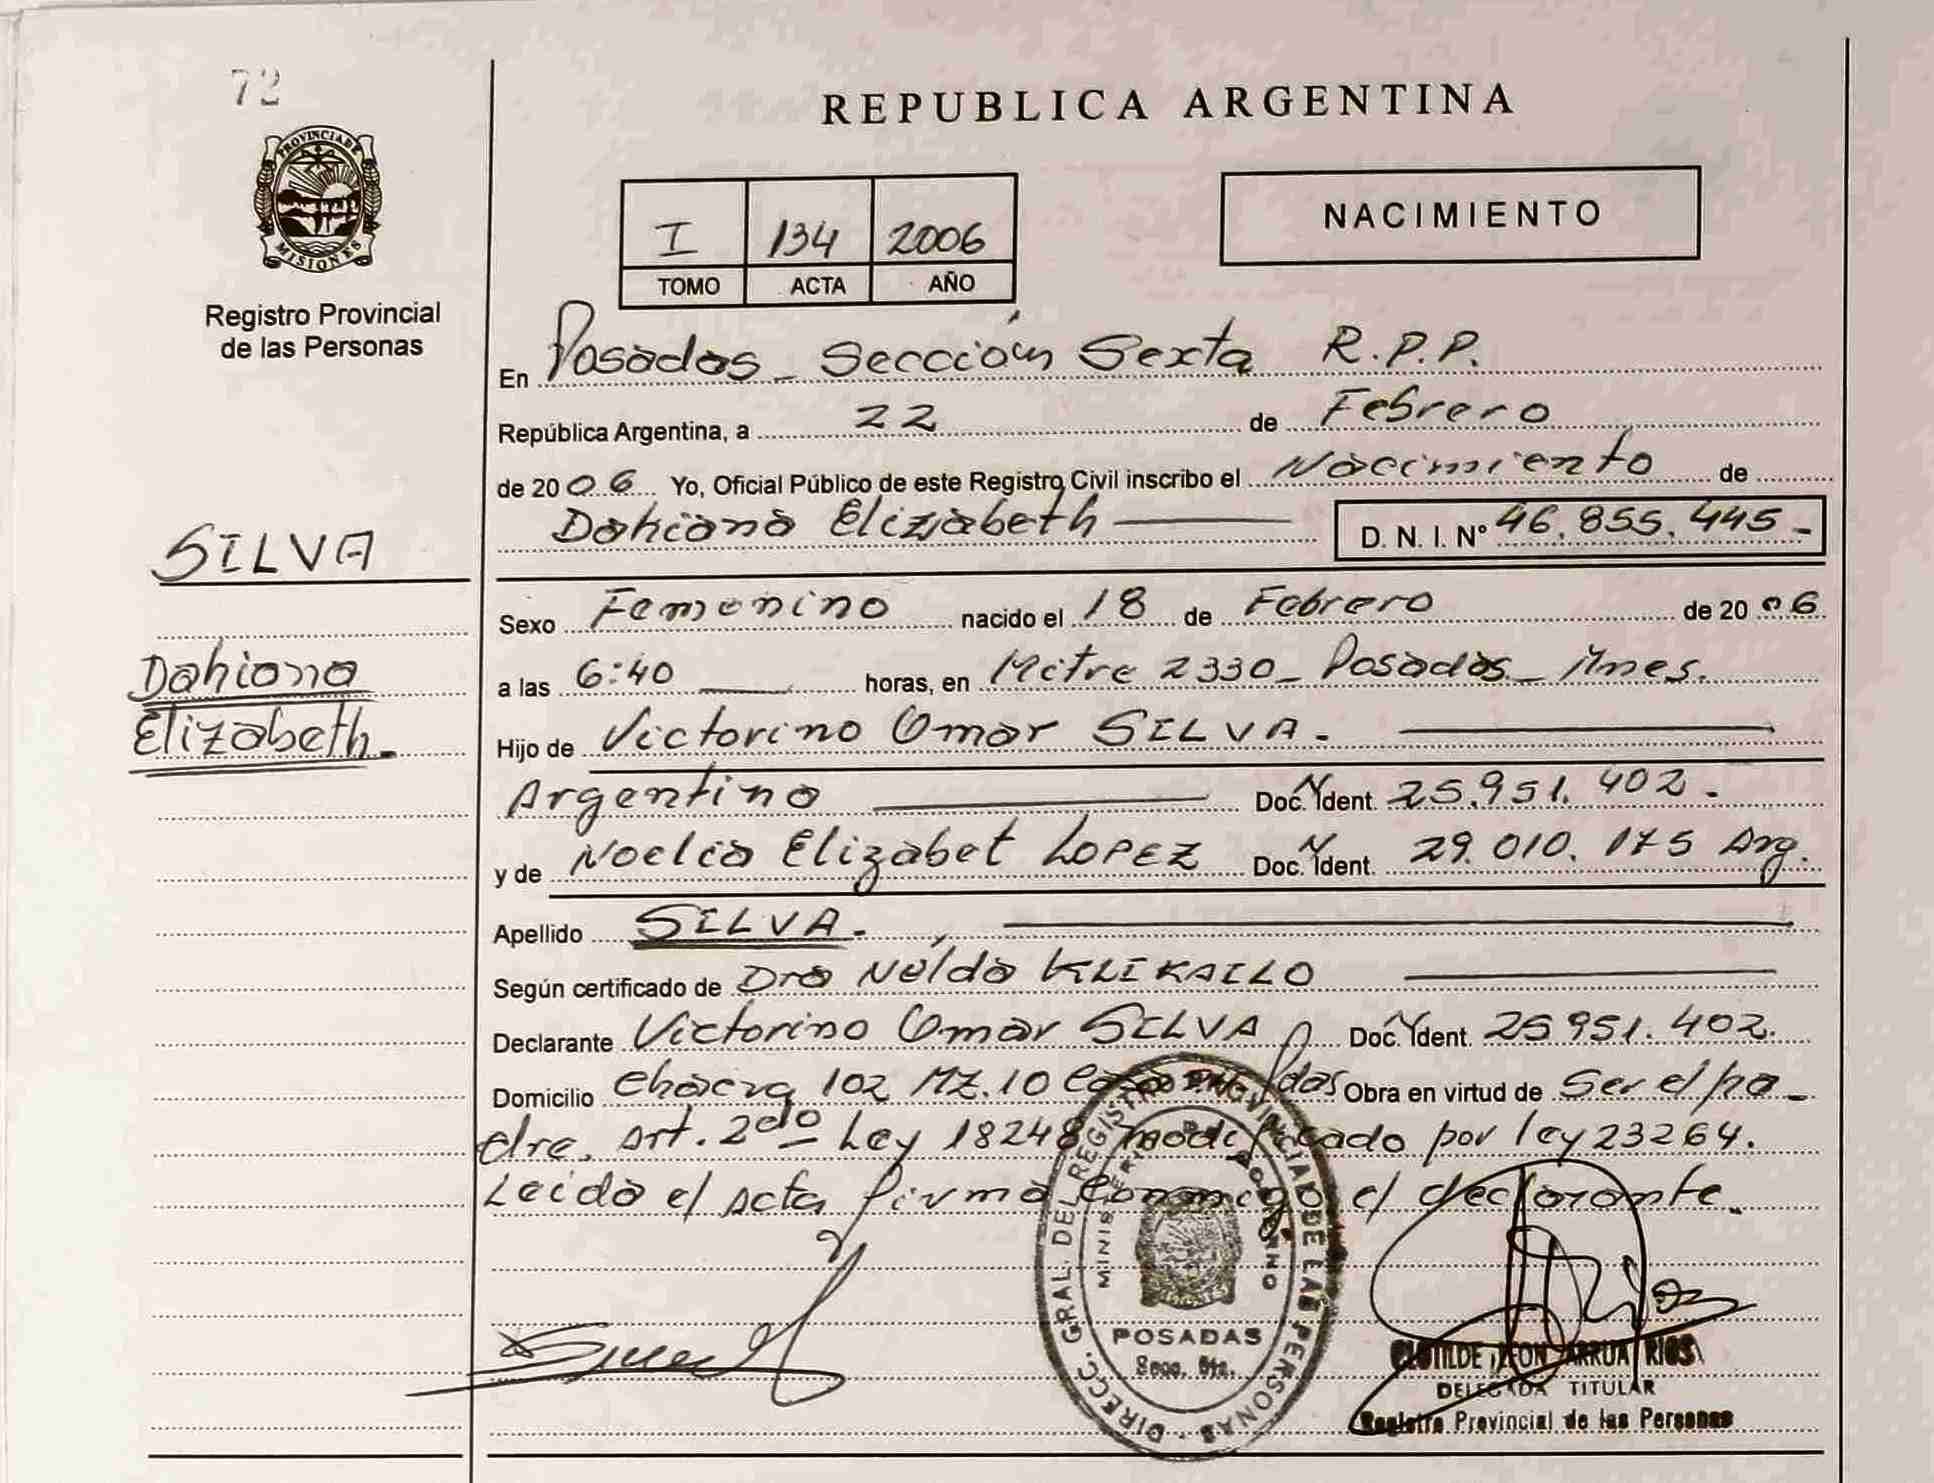 72
PROVINCIA DE
MISIONES
Registro Provincial
de las Personas
REPUBLICA ARGENTINA
I 134 2006
TOMO ACTA AÑO
NACIMIENTO
En Posadas_ Sección Sexta R.P.P.
República Argentina, a 22 de Febrero
de 2006 Yo, Oficial Público de este Registro Civil inscribo el Nacimiento de
Dahiana Elizabeth
D. N. I. Nº 46.855.445-
SILVA
Dahiana
Elizabeth.
Sexo Femenino nacido el 18 de Febrero de 2006
a las 6:40 horas, en Mitre 2330_ Posadas_ Mnes.
Hijo de Victorino Omar SILVA.
Argentino Doc. Ident. 25.951.402.
y de Noelia Elizabet LOPEZ Doc. Ident. 29.010.175 Arg.
Apellido SILVA.
Según certificado de Dra Nélida
Declarante Victorino Omar SILVA Doc. Ident. 25951.402.
Domicilio Chacra 102 MZ.10 Casa Pdas Obra en virtud de Ser el pa_
dre. Art. 2do Ley 18248 modificado por ley 23264.
Leida el acta firma conmigo el declarante.
DIRECC. GRAL. DEL REGISTRO PROVINCIAL DE LAS PERSONAS
MINISTERIO DE GOBIERNO
POSADAS
Secc. 6ta.
CLOTILDE LEON ARRUA RIOS
DELEGADA TITULAR
Registro Provincial de las Personas